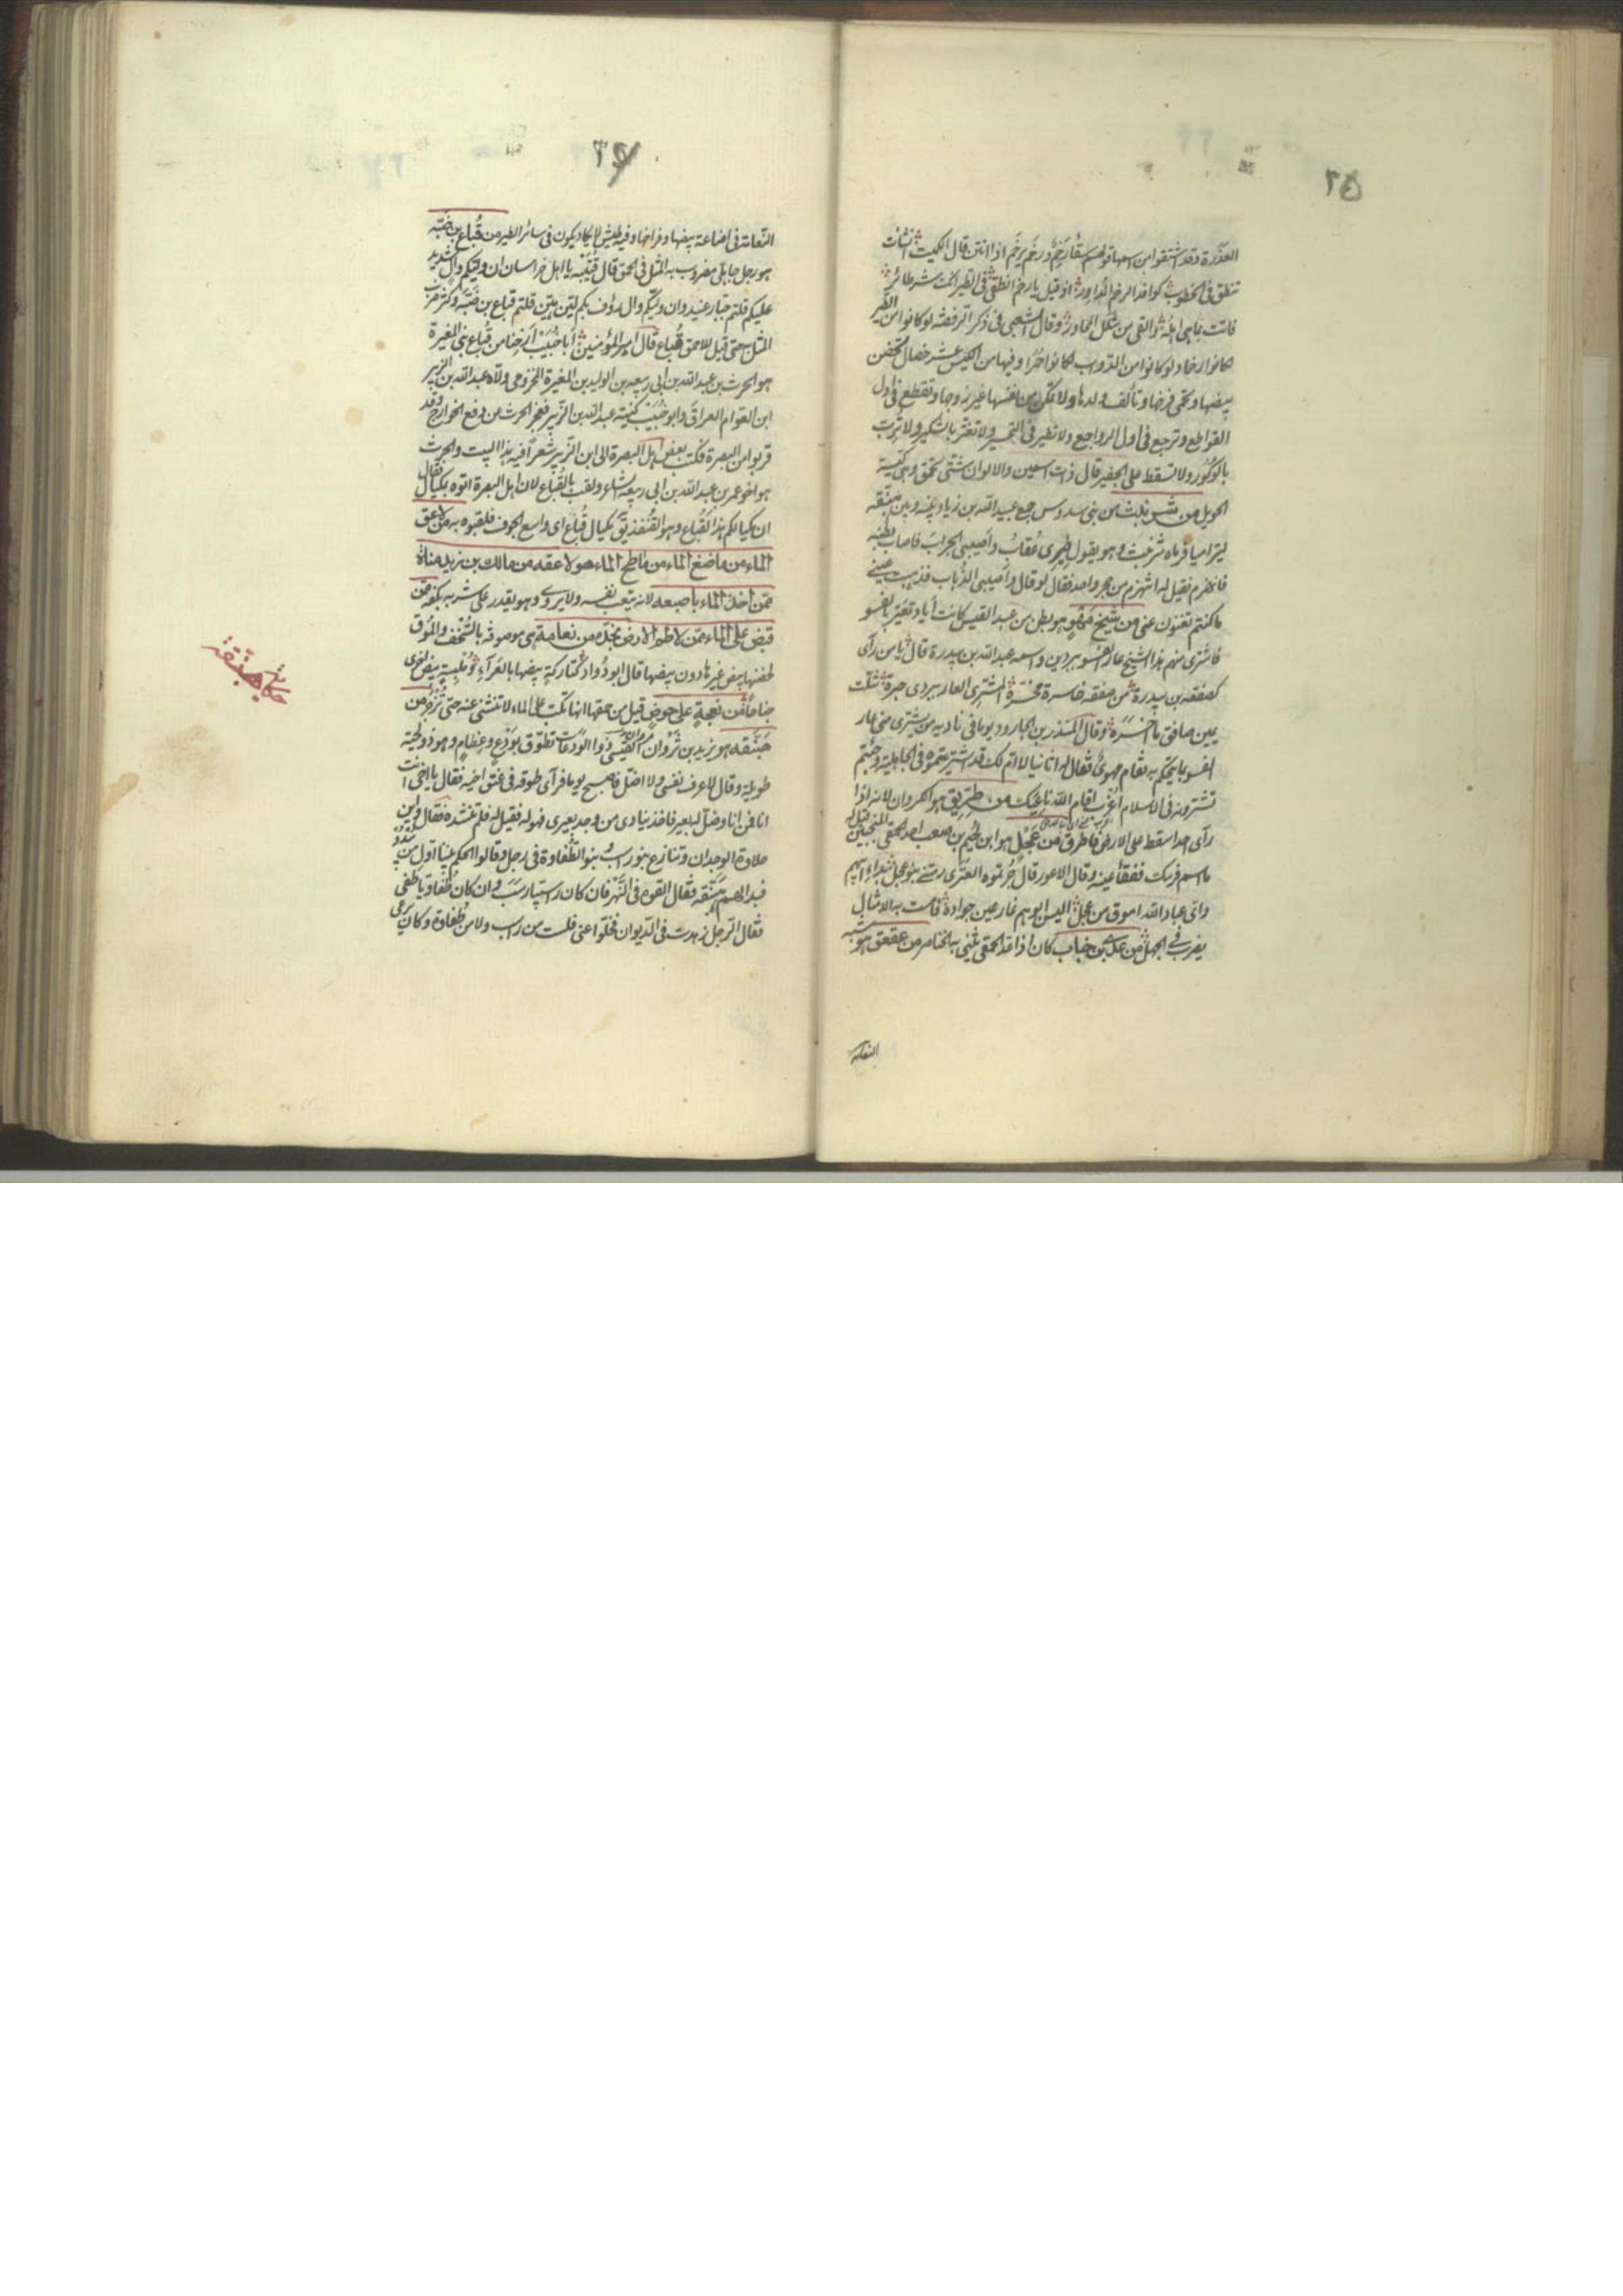 ٣٥
العذرة وقد اشتقوا من اسمها قولهم سقاء رخم ورخم يرخم اذا انتن قال الكميت انشأت
تنطق فى الخطوب كوافد الرخم الدواور اذ قيل يا رخم انطقى فى الطير انك شر طائر
فاتت بما هى اهله والعى من شكل المحاور وقال الشعبى فى ذكر الرفضة لو كانوا من الطير
لكانوا رخما ولو كانوا من الدواب لكانوا حمرا وفيها من الكيس عشر خصال تحضن
بيضها وتحمى فرخها وتألف ولدها ولا تمكن من نفسها غير زوجها وتقطع فى اول
القواطع وترجع فى اول الرواجع ولا تطير فى التحسير ولا تغتر بالشكير ولا ترب
بالوكور ولا تسقط على الجفير قال ذات اسمين والالوان شتى تحمق وهى كيسة
الحويل من شرنبث من بنى سدوس جمع عبيد الله بن زياد بينه وبين هبنقة
ليتراميا فرماه شرنبث وهو يقول طيرى عقاب واصيبى الجراب فاصاب بطنه
فانهزم فقيل له اتنهزم من حجر واحد فقال لو قال واصيبى الذباب فذهبت عينى
ما كنتم تغنون عنى من شيخ مهو هو بطن من عبد القيس كانت اياد تعير بالفسو
فاشترى منهم هذا الشيخ عار الفسو ببردين واسمه عبد الله بن بيدرة قال يا من رأى
كصفقة بن بيدرة من صفقة خاسرة مخسرة المشترى العار ببردى حبرة شلت
يمين صافق ما اخسره وقال المنذر بن الجارود يوما فى ناديه من يشترى منى عار
الفسو بما يحكم به فقام مهوى فقال له اثانيا لا ام لك قد اشتريتموه فى الجاهلية وجئتم
تشترونه فى الاسلام اغرب اقام الله ناعيك من طريق هو الكروان لانه اذا
رأى احدا سقط على الارض فاطرق من عجل هو ابن لجيم بن صعب احد الحمقى المنجبين قيل له
ما اسم فرسك ففقأ عينه وقال الاعور قال جرثومة العنزى رمتنى بنو عجل بداء ابيهم
واى عباد الله اموق من عجل اليس ابوهم عار عين جواده فاست به الامثال
يضرب فى الجهل من عدى بن جناب كان اذا عد الحمقى يثنى به الخناصر من عقعق هو شبه
النعامة
٣٦
النعامة فى اضاعة بيضها وفراخها وفيه طيش لا يكاد يكون فى سائر الطير من قباع بن ضبة
هو رجل جاهلى مضروب به المثل فى الحمق قال قتيبة يا اهل خراسان ان وليكم وال شديد
عليكم قلتم جبار عنيد وان وليكم وال رؤف بكم لين هين قلتم قباع بن ضبة وكثر ضرب
المثل حتى قيل للاحمق قباع قال امير المؤمنين ابا خبيب ارحنا من قباع بنى المغيرة
هو الحرث بن عبد الله بن ابى ربيعة بن الوليد بن المغيرة المخزومى ولاه عبد الله بن الزبير
ابن العوام العراق وابو خبيب كنية عبد الله بن الزبير فعجز الحرث من دفع الخوارج وقد
قربوا من البصرة فكتب بعض اهل البصرة الى ابن الزبير شعرا فيه هذا البيت والحرث
هو اخو عمر بن عبد الله بن ابى ربيعة الشاعر ولقب بالقباع لان اهل البصرة اتوه بمكيال فقال
ان مكيالكم هذا لقباع وهو القنفذ يق مكيال قباع اى واسع الجوف فلقبوه به من لاعق
الماء من ماضغ الماء من ماطح الماء هو لاعقه من مالك بن زيد مناة
ممن اخذ الماء باصبعه لانه يتعب نفسه ولا يروى وهو يقدر على شربه بكفه ممن
قبض على الماء ممن لاطم الارض بخده من نعامة هى موصوفة بالسخف والموق
لحضنها بيض غيرها دون بيضها قال ابو دواد كتاركة بيضها بالعراء وملبسة بيض اخرى
جناحا من نعجة على حوض قيل من حمقها انها تكب على الماء لا تنثنى عنه حتى تزجر من
هبنقة هو يزيد بن ثروان القيسى ذو الودعات تطوق بودع وعظام وهو ذو لحية
طويلة وقال لاعرف نفسى ولا اضل فاصبح يوما فرأى طوقه فى عنق اخيه فقال يا اخى انت
انا فمن انا وضل له بعير فاخذ ينادى من وجد بعيرى فهو له فقيل له فلم تنشده فقال واين
حلاوة الوجدان وتنازع بنو راسب وبنو الطفاوة فى رجل وقالوا الحكم بيننا اول من يبدو
فبدا لهم هبنقة فقال القوه فى النهر فان كان راسبيا رسب وان كان طفاويا طفى
فقال الرجل زهدت فى الديوان فخلوا عنى فلست من راسب ولا من طفاوة وكان يرعى
حكاية هبنقة